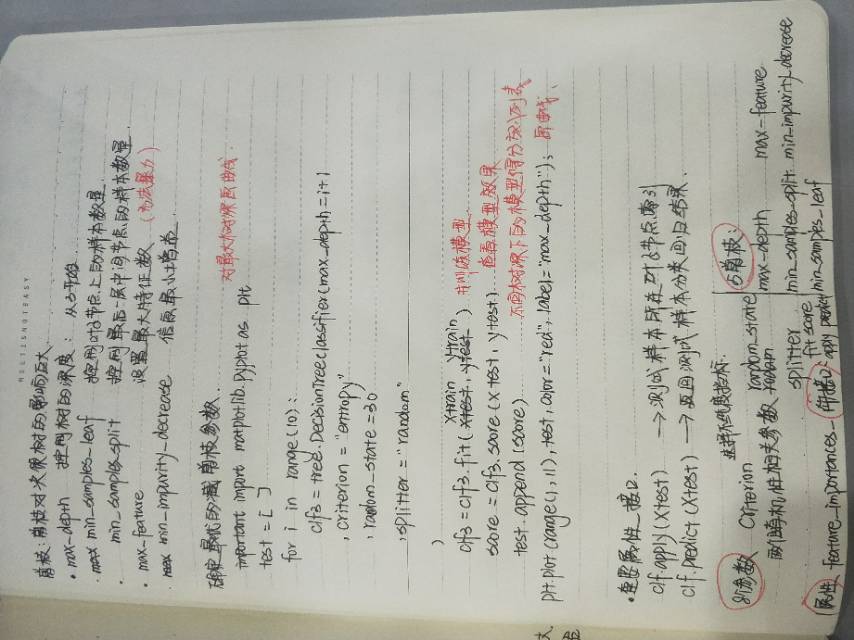 MULTIS NOT EASY
剪枝:剪枝对决策树的影响巨大
• max-depth 控制树的深度: 从3开始
• min_samples_leaf 控制叶子节点上的样本数量.
• min_samples_split 控制最后一层中间节点的样本数量
• max-feature 设置最大特征数 (方法暴力)
• min-impurity-decrease 信息最小增益.
确定最优的 剪枝参数.
important import matplotlib.pyplot as plt 对最大树深画曲线.
test = [ ]
for i in range(10):
clf3 = tree.DecisionTreeClassifier(max_depth=i+1
, criterion = "entropy"
, random_state=30
, splitter = "random"
)
xtrain ytrain
clf3 = clf3.fit( xtest, ytest ) 并训练模型
score = clf3.score(xtest, ytest) 查看模型效果
test.append(score) 不同树深下的模型得分放入列表
plt.plot(range(1,11),test,color="red",label="max_depth"); 画曲线.
• 重要属性_接口.
clf.apply(Xtest) → 测试样本所在叶子节点索引
clf.predict(Xtest) → 返回测试样本分类回归结果.
8个参数 Criterion 选择不纯度指标.
两个随机性相关参数 random_state
splitter
5个剪枝:
max-depth max-feature
min_samples_split min_impurity_decrease
min_samples_leaf
1属性 feature_importances_ 4接口: fit score apply predict